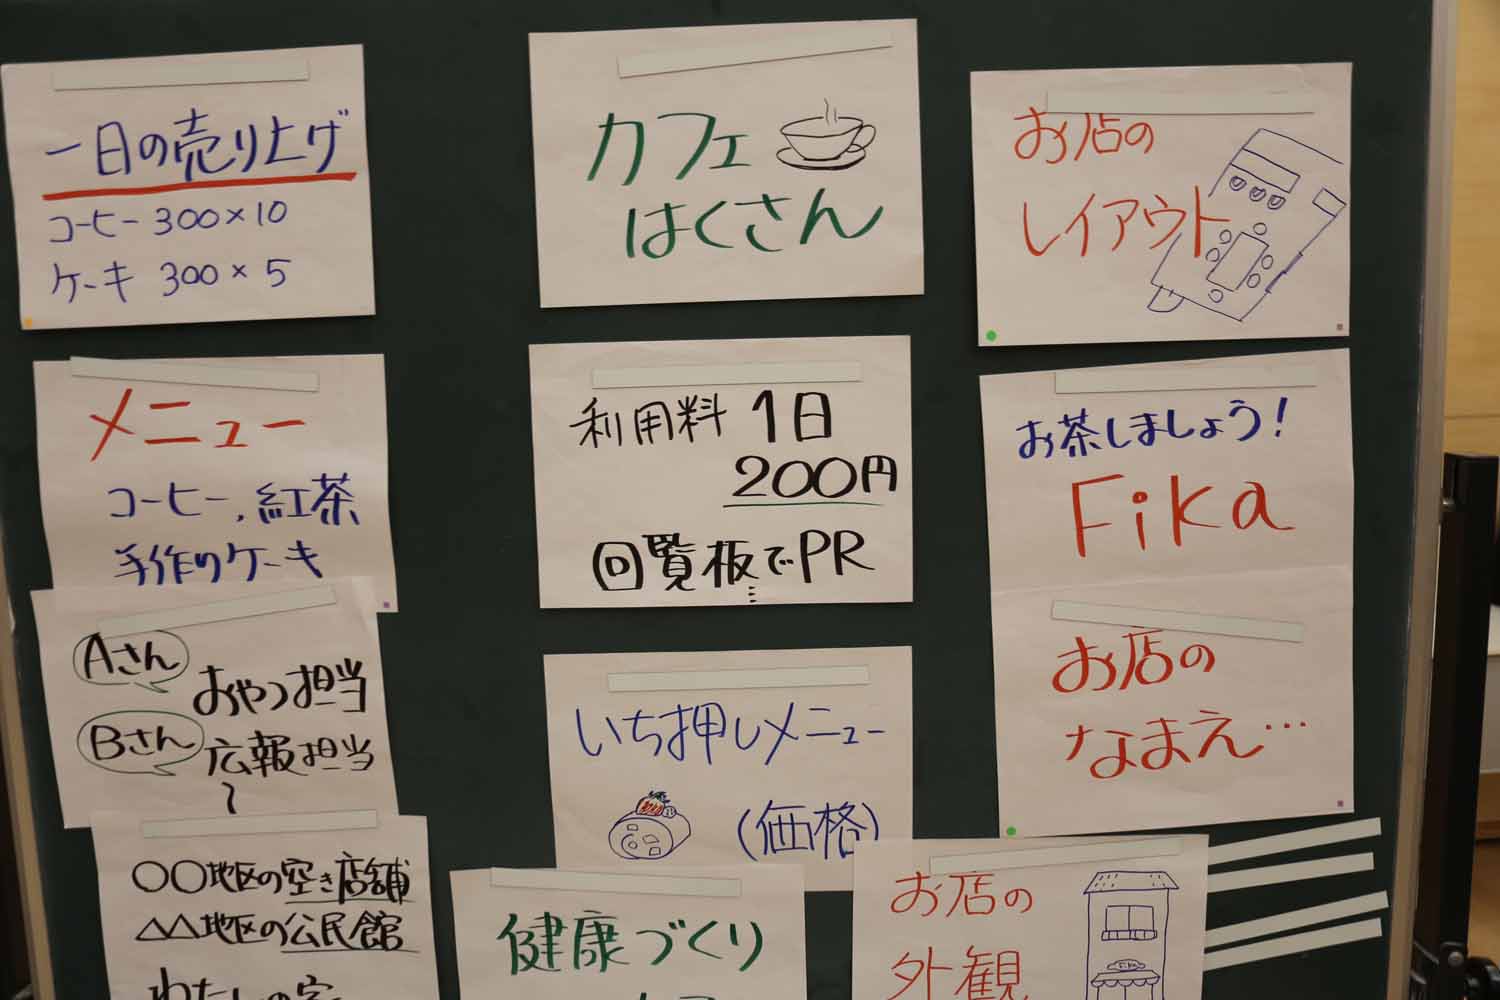 一日の売り上げ
コーヒー 300×10
ケーキ 300×5
メニュー
コーヒー、紅茶
手作りケーキ
Aさん
おやつ担当
Bさん
広報担当
〜
〇〇地区の空き店舗
△△地区の公民館
わたしの家
カフェ
はくさん
利用料 1日
200円
回覧板でPR
いち押しメニュー
(価格)
健康づくり
お店の
レイアウト
お茶しましょう!
Fika
お店の
なまえ…
お店の
外観
Fika